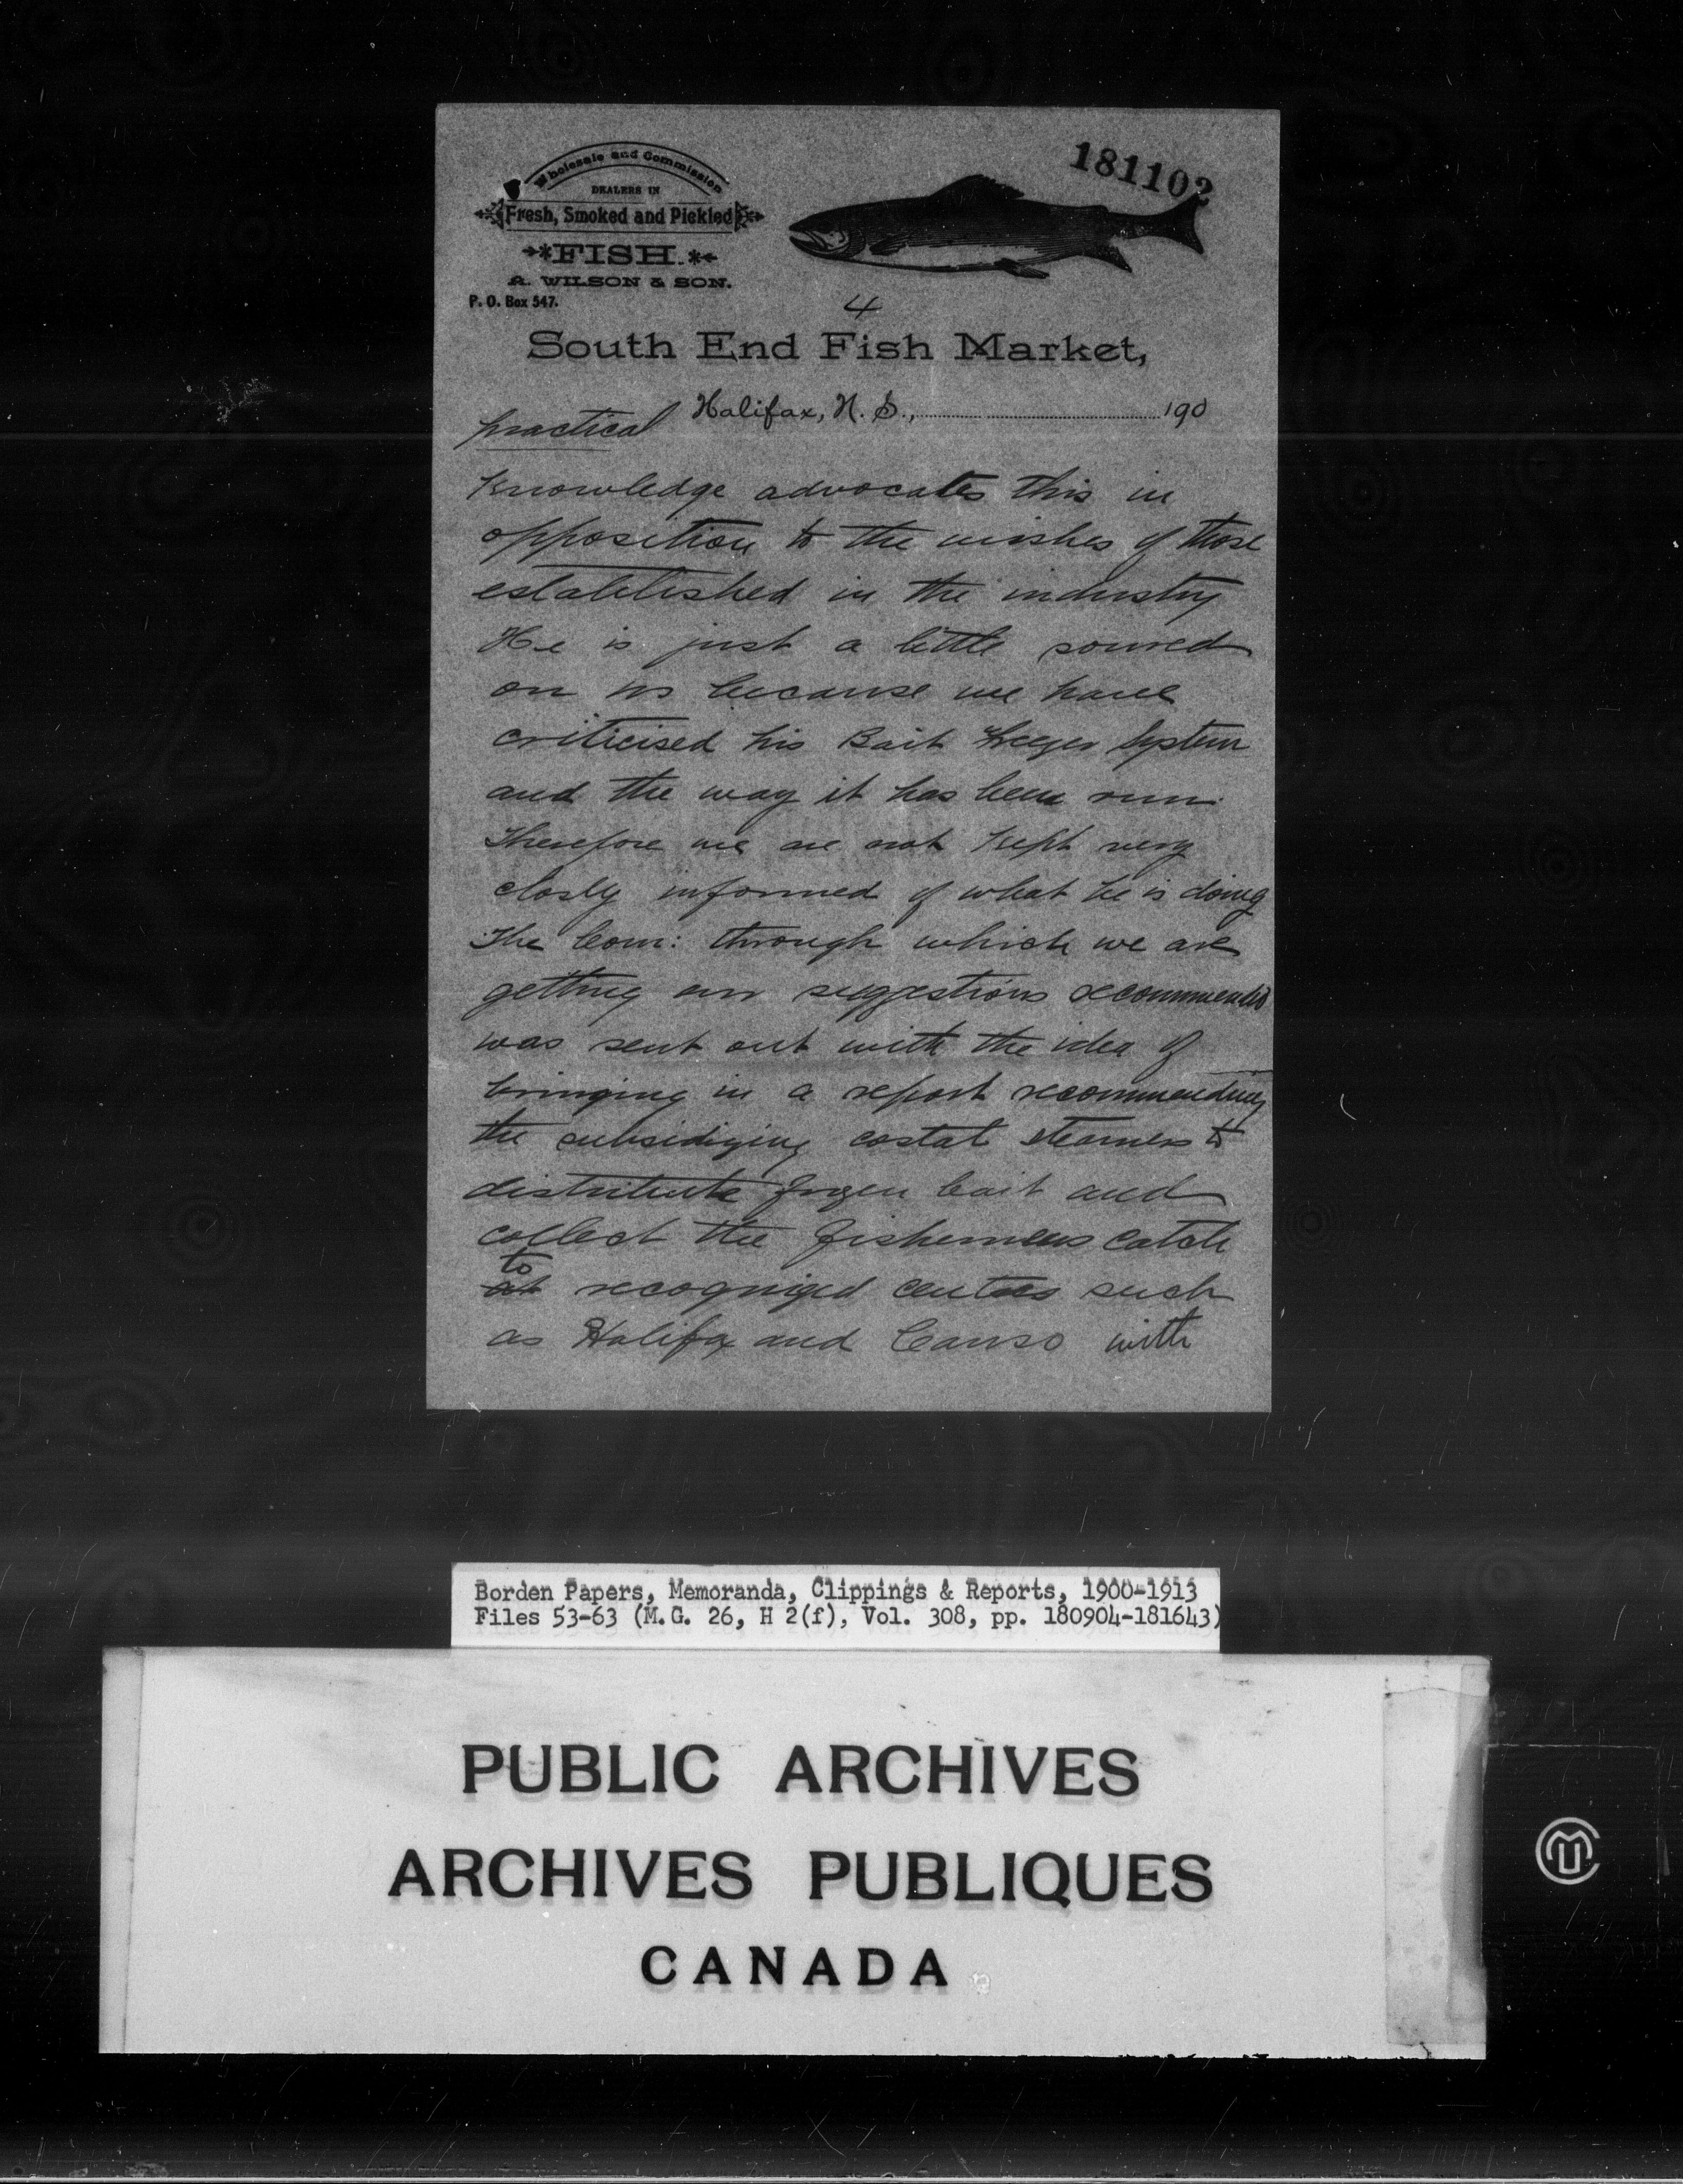 181102
Wholesale and Commission
DEALERS IN
Fresh, Smoked and Pickled
FISH.
A. WILSON & SON.
P. O. Box 547.
4
South End Fish Market,
Halifax, N. S., 190
practical
knowledge advocates this in
opposition to the wishes of those
established in the industry
He is just a little soured
on us because we have
criticised his Bait Freezer System
and the way it has been run.
Therefore we are not kept very
closly informed of what he is doing
The Com: through which we are
getting our suggestions recommended
was sent out with the idea of
bringing in a report recommending
the subsidizing costal steamers to
distribute frozen bait and
collect the fishermens catch
to
at recognized centres such
as Halifax and Canso with
Borden Papers, Memoranda, Clippings & Reports, 1900-1913
Files 53-63 (M.G. 26, H 2(f), Vol. 308, pp. 180904-181643)
PUBLIC ARCHIVES
ARCHIVES PUBLIQUES
CANADA